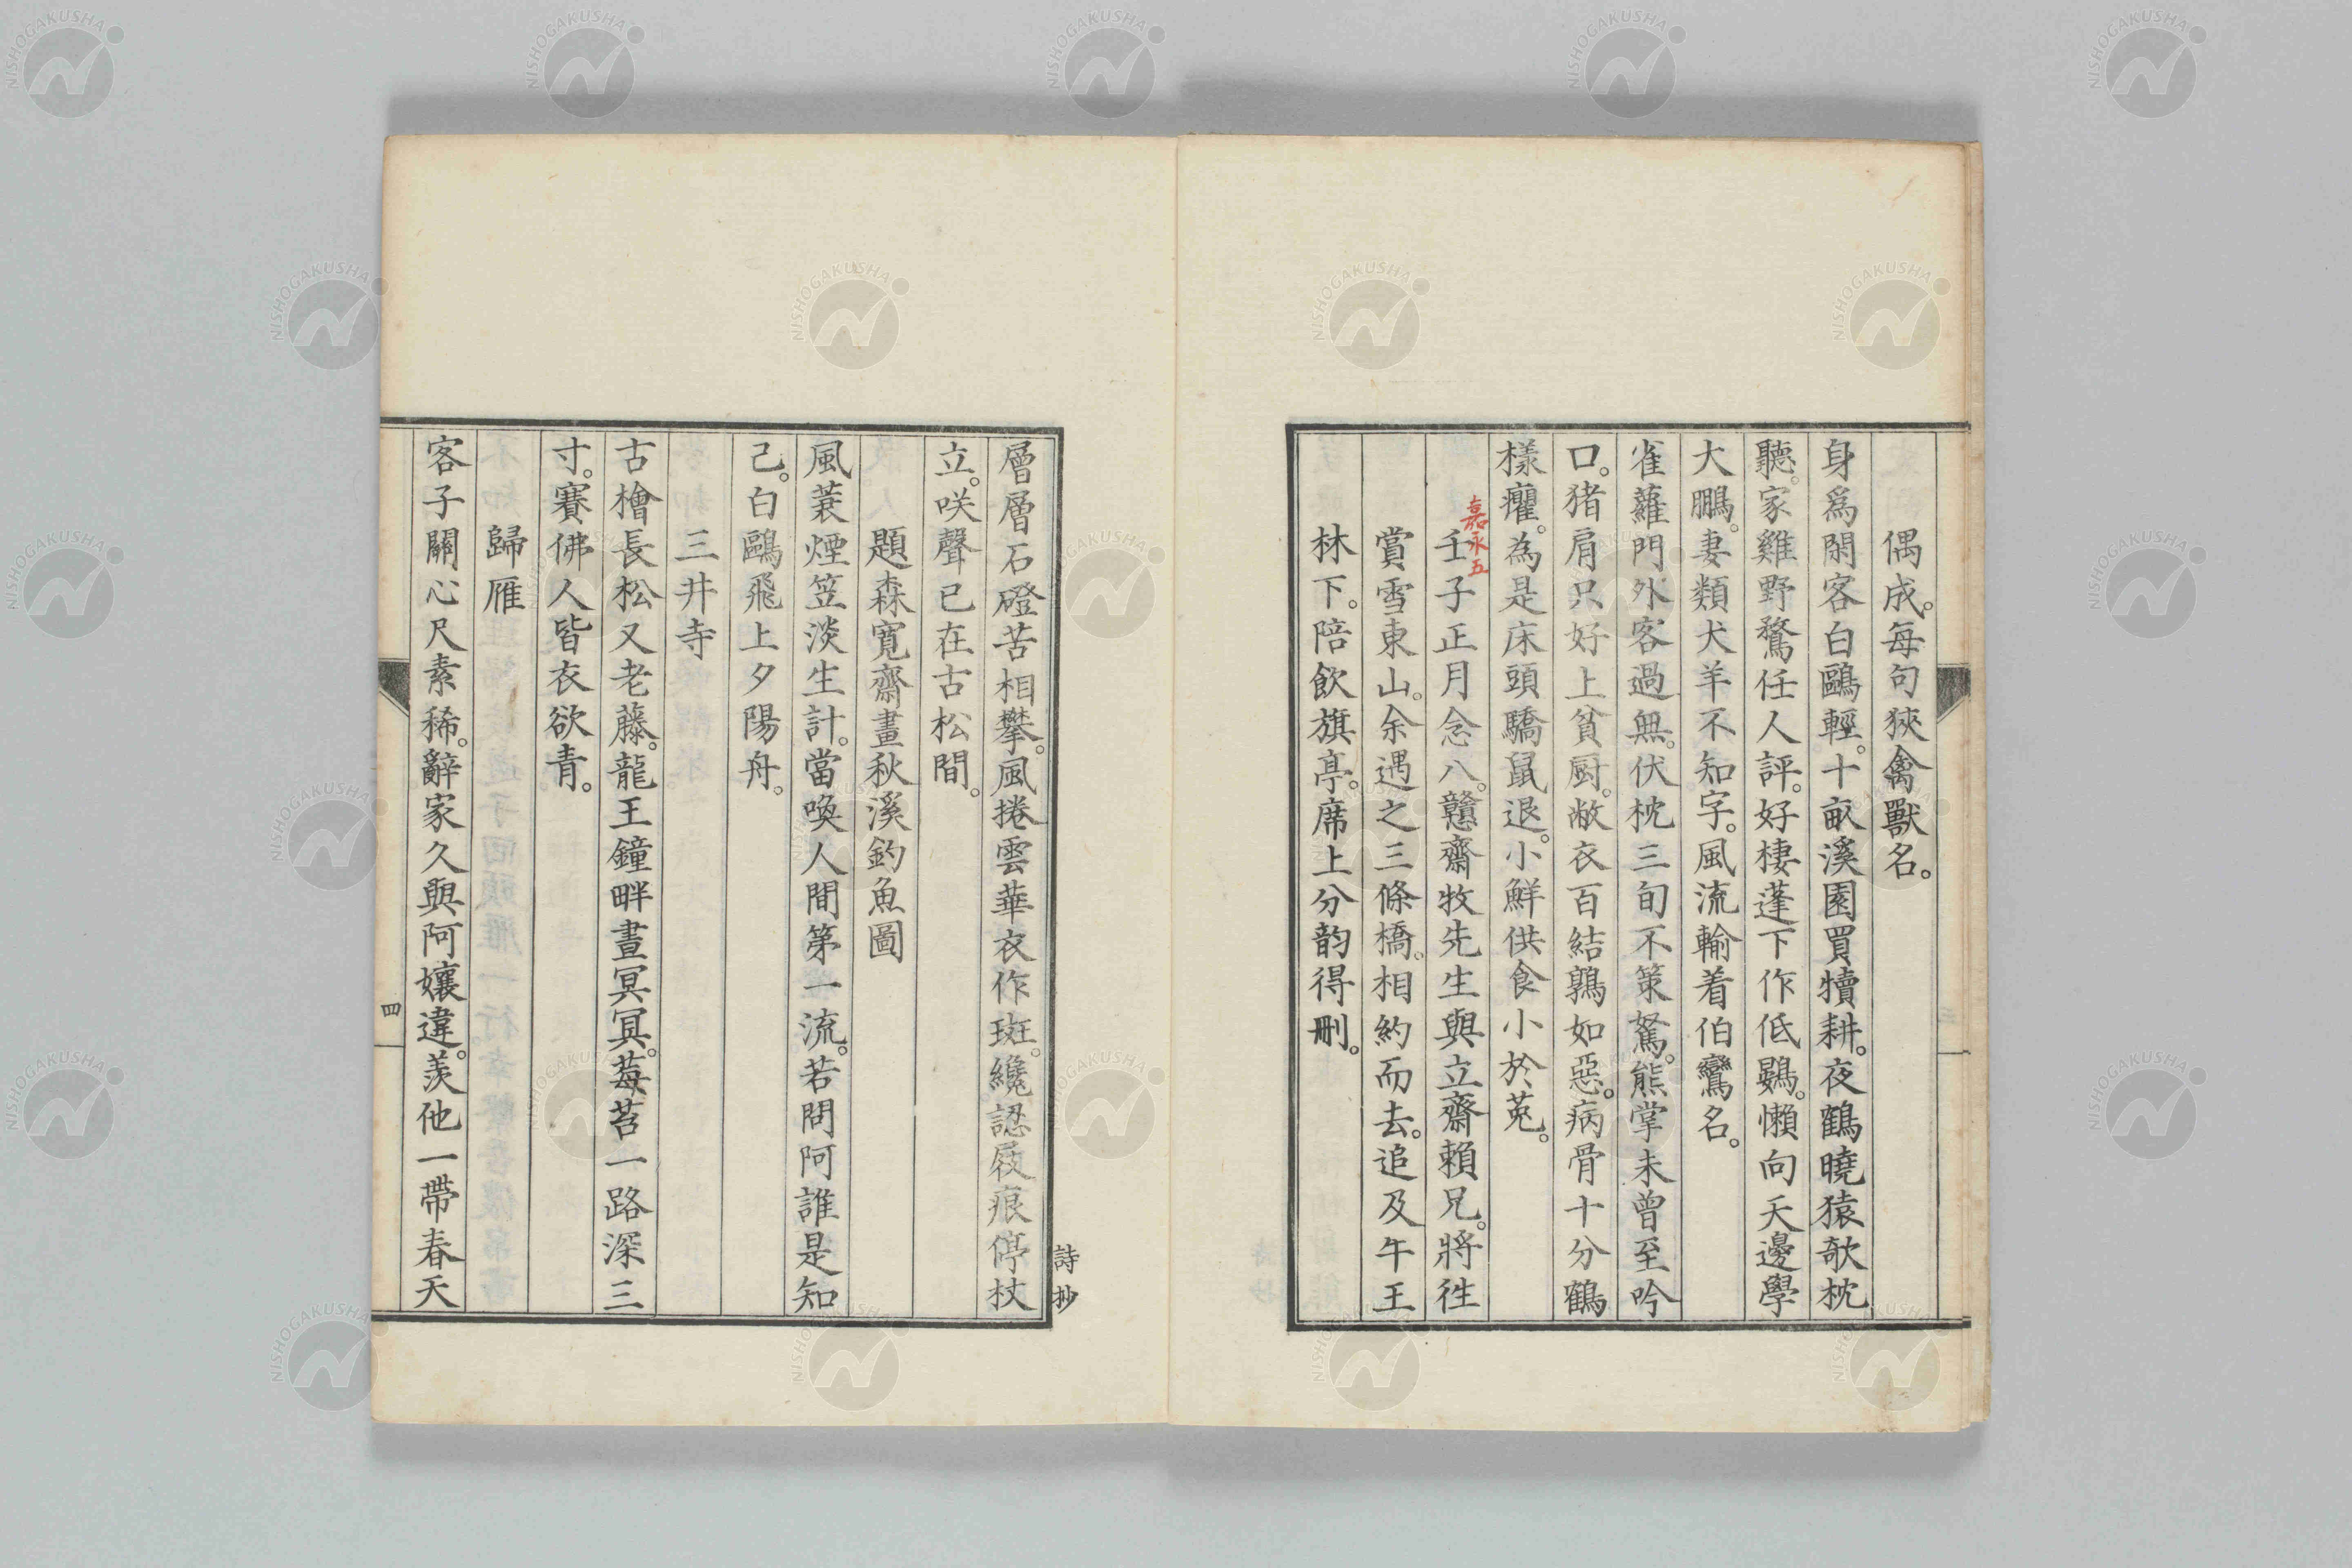 偶成。每句狹禽獸名。
身爲閑客白鷗輕。十畝溪園買犢耕。夜鶴曉猿欹枕
聽。家雞野鶩任人評。好棲蓬下作低鷃。懶向天邊學
大鵬。妻類犬羊不知字。風流輸着伯鸞名。
雀蘿門外客過無。伏枕三旬不策駑。熊掌未曾至吟
口。猪肩只好上貧厨。敝衣百結鶉如惡。病骨十分鶴
樣癯。為是床頭驕鼠退。小鮮供食小於菟。
嘉永五
壬子正月念八。戇齋牧先生與立齋賴兄。將徃
賞雪東山。余遇之三條橋。相約而去。追及午王
林下。陪飲旗亭。席上分韵得刪。
層層石磴苦相攀。風捲雲華衣作斑。纔認屐痕停杖
立。咲聲已在古松間。
題森寬齋畫秋溪釣魚圖
風蓑煙笠淡生計。當喚人間第一流。若問阿誰是知
己。白鷗飛上夕陽舟。
三井寺
古檜長松又老藤。龍王鐘畔晝冥冥。莓苔一路深三
寸。賽佛人皆衣欲青。
歸雁
客子關心尺素稀。辭家久與阿孃違。羨他一帶春天
詩抄
四
NISHOGAKUSHA